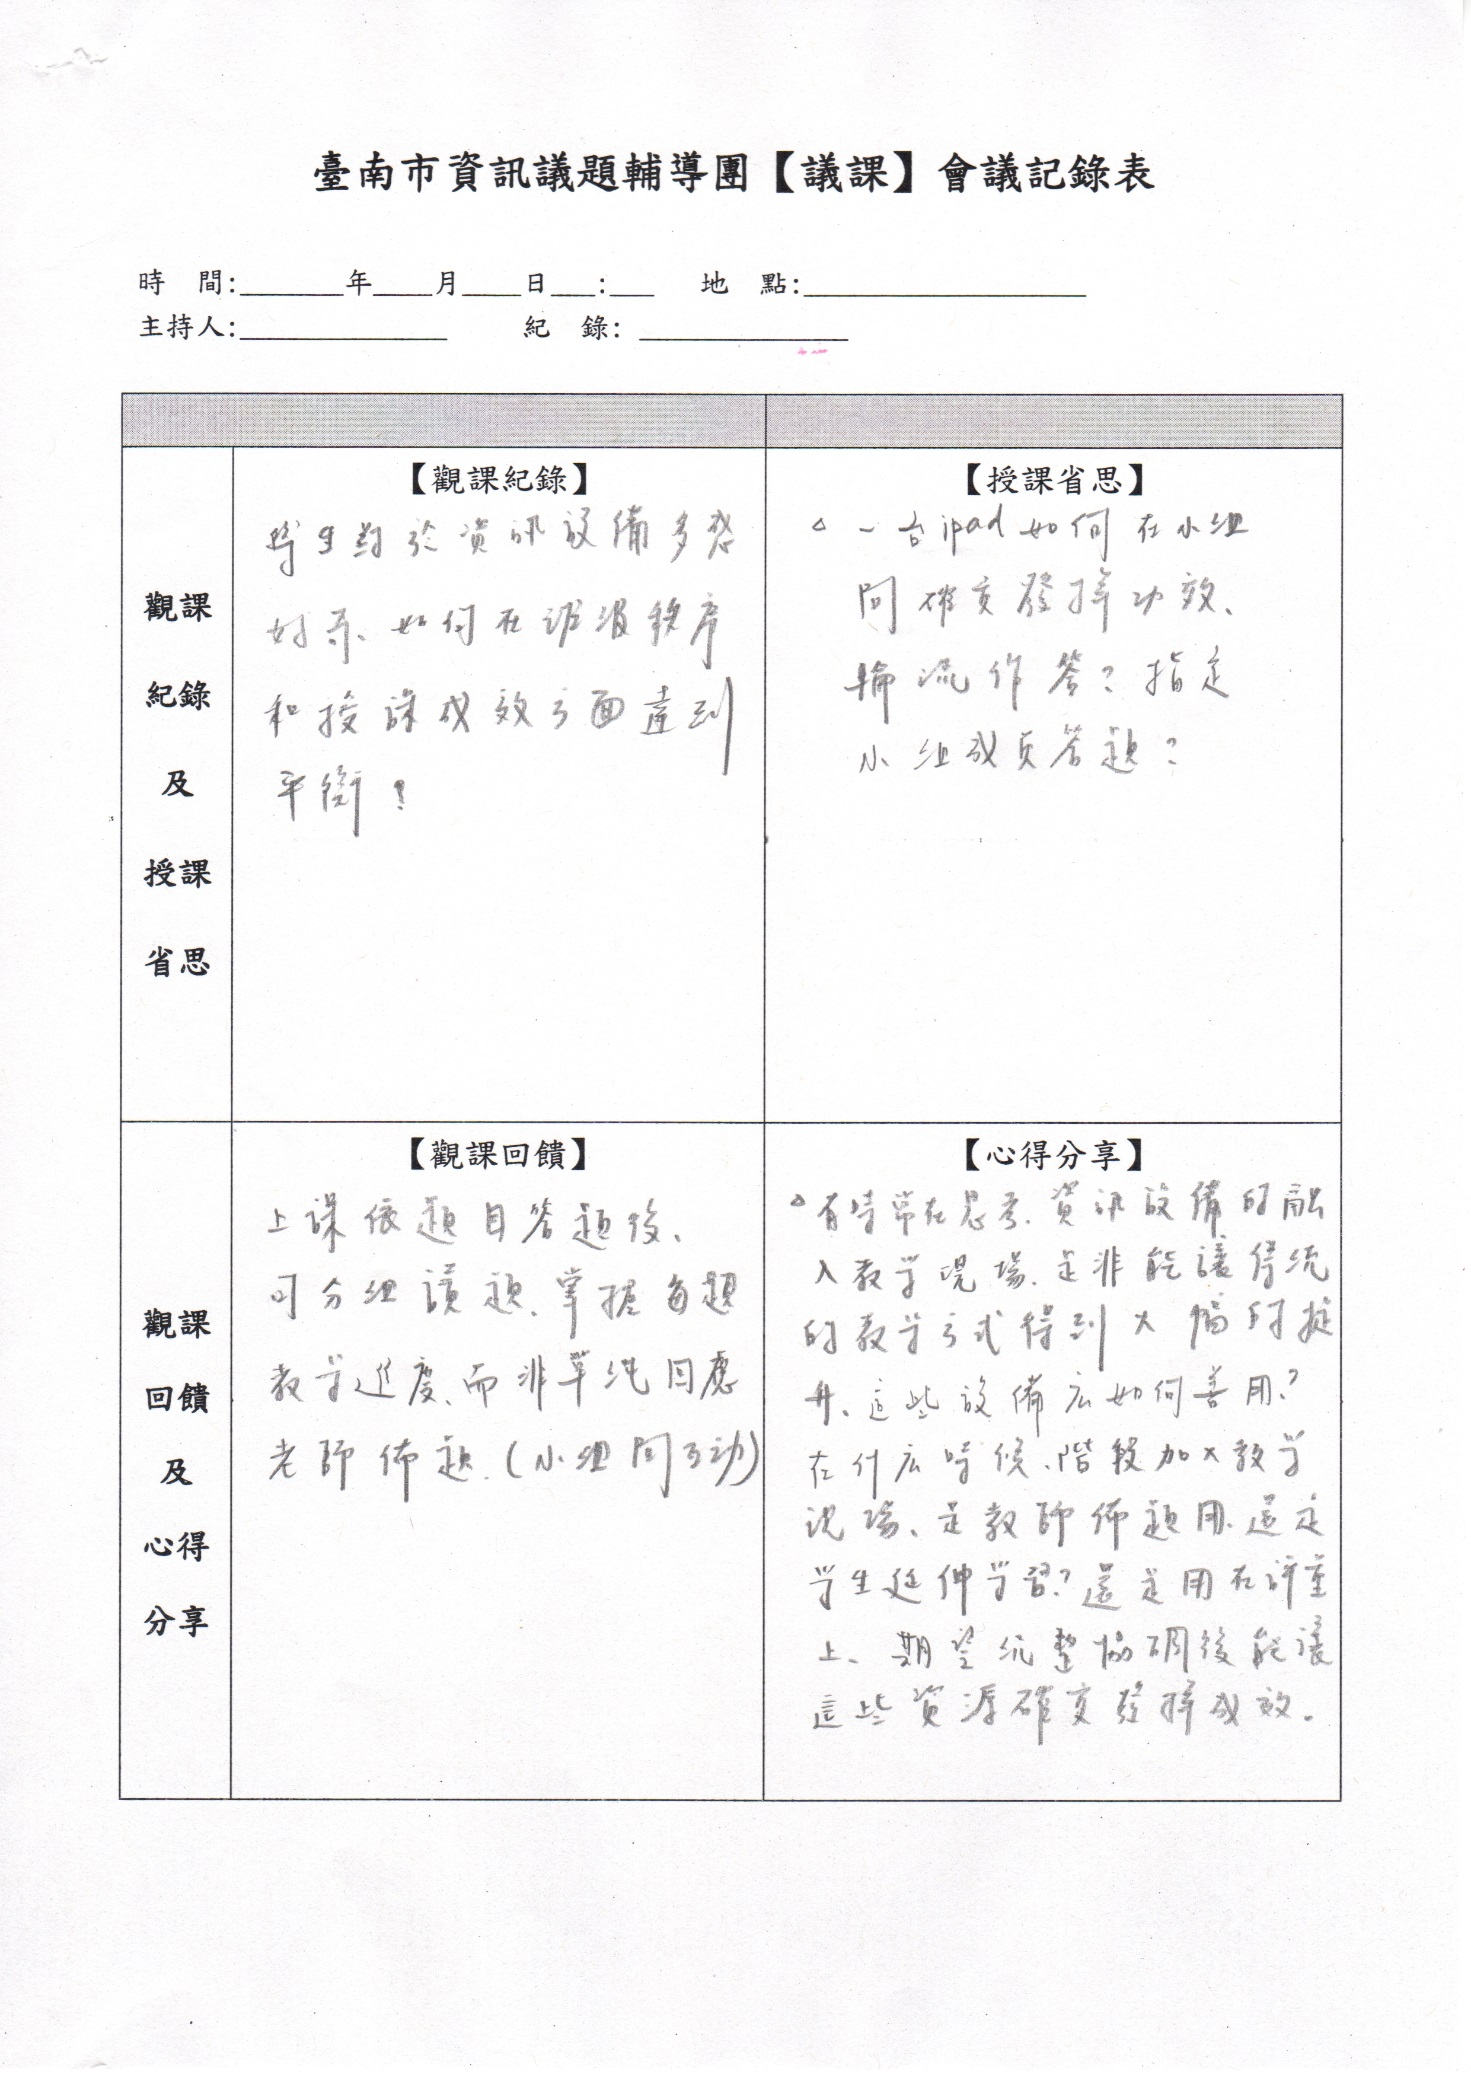 臺南市資訊議題輔導團【議課】會議記錄表
時 間:_______年____月____日___:___ 地 點:___________________
主持人:______________ 紀 錄: ______________
觀課
紀錄
及
授課
省思
【觀課紀錄】
學生對於資訊設備多感
好奇、如何在班級秩序
和授課成效方面達到
平衡!
【授課省思】
△ 一台ipad如何在小組
間確實發揮功效、
輪流作答?指定
小組成員答題?
觀課
回饋
及
心得
分享
【觀課回饋】
上課依題目答題後、
可分組讀題、掌握每題
教学進度、而非單純因應
老師佈題.(小組間互動)
【心得分享】
△有時常在思考、資訊設備的融
入教学現場、是非能讓傳統
的教学方式得到大幅的提
升、這些設備应如何善用?
在什広時候、階段加入教学
現場、是教師佈題用、還是
学生延伸学習?還是用在評量
上、期望統整協調後能讓
這些資源確實發揮成效。